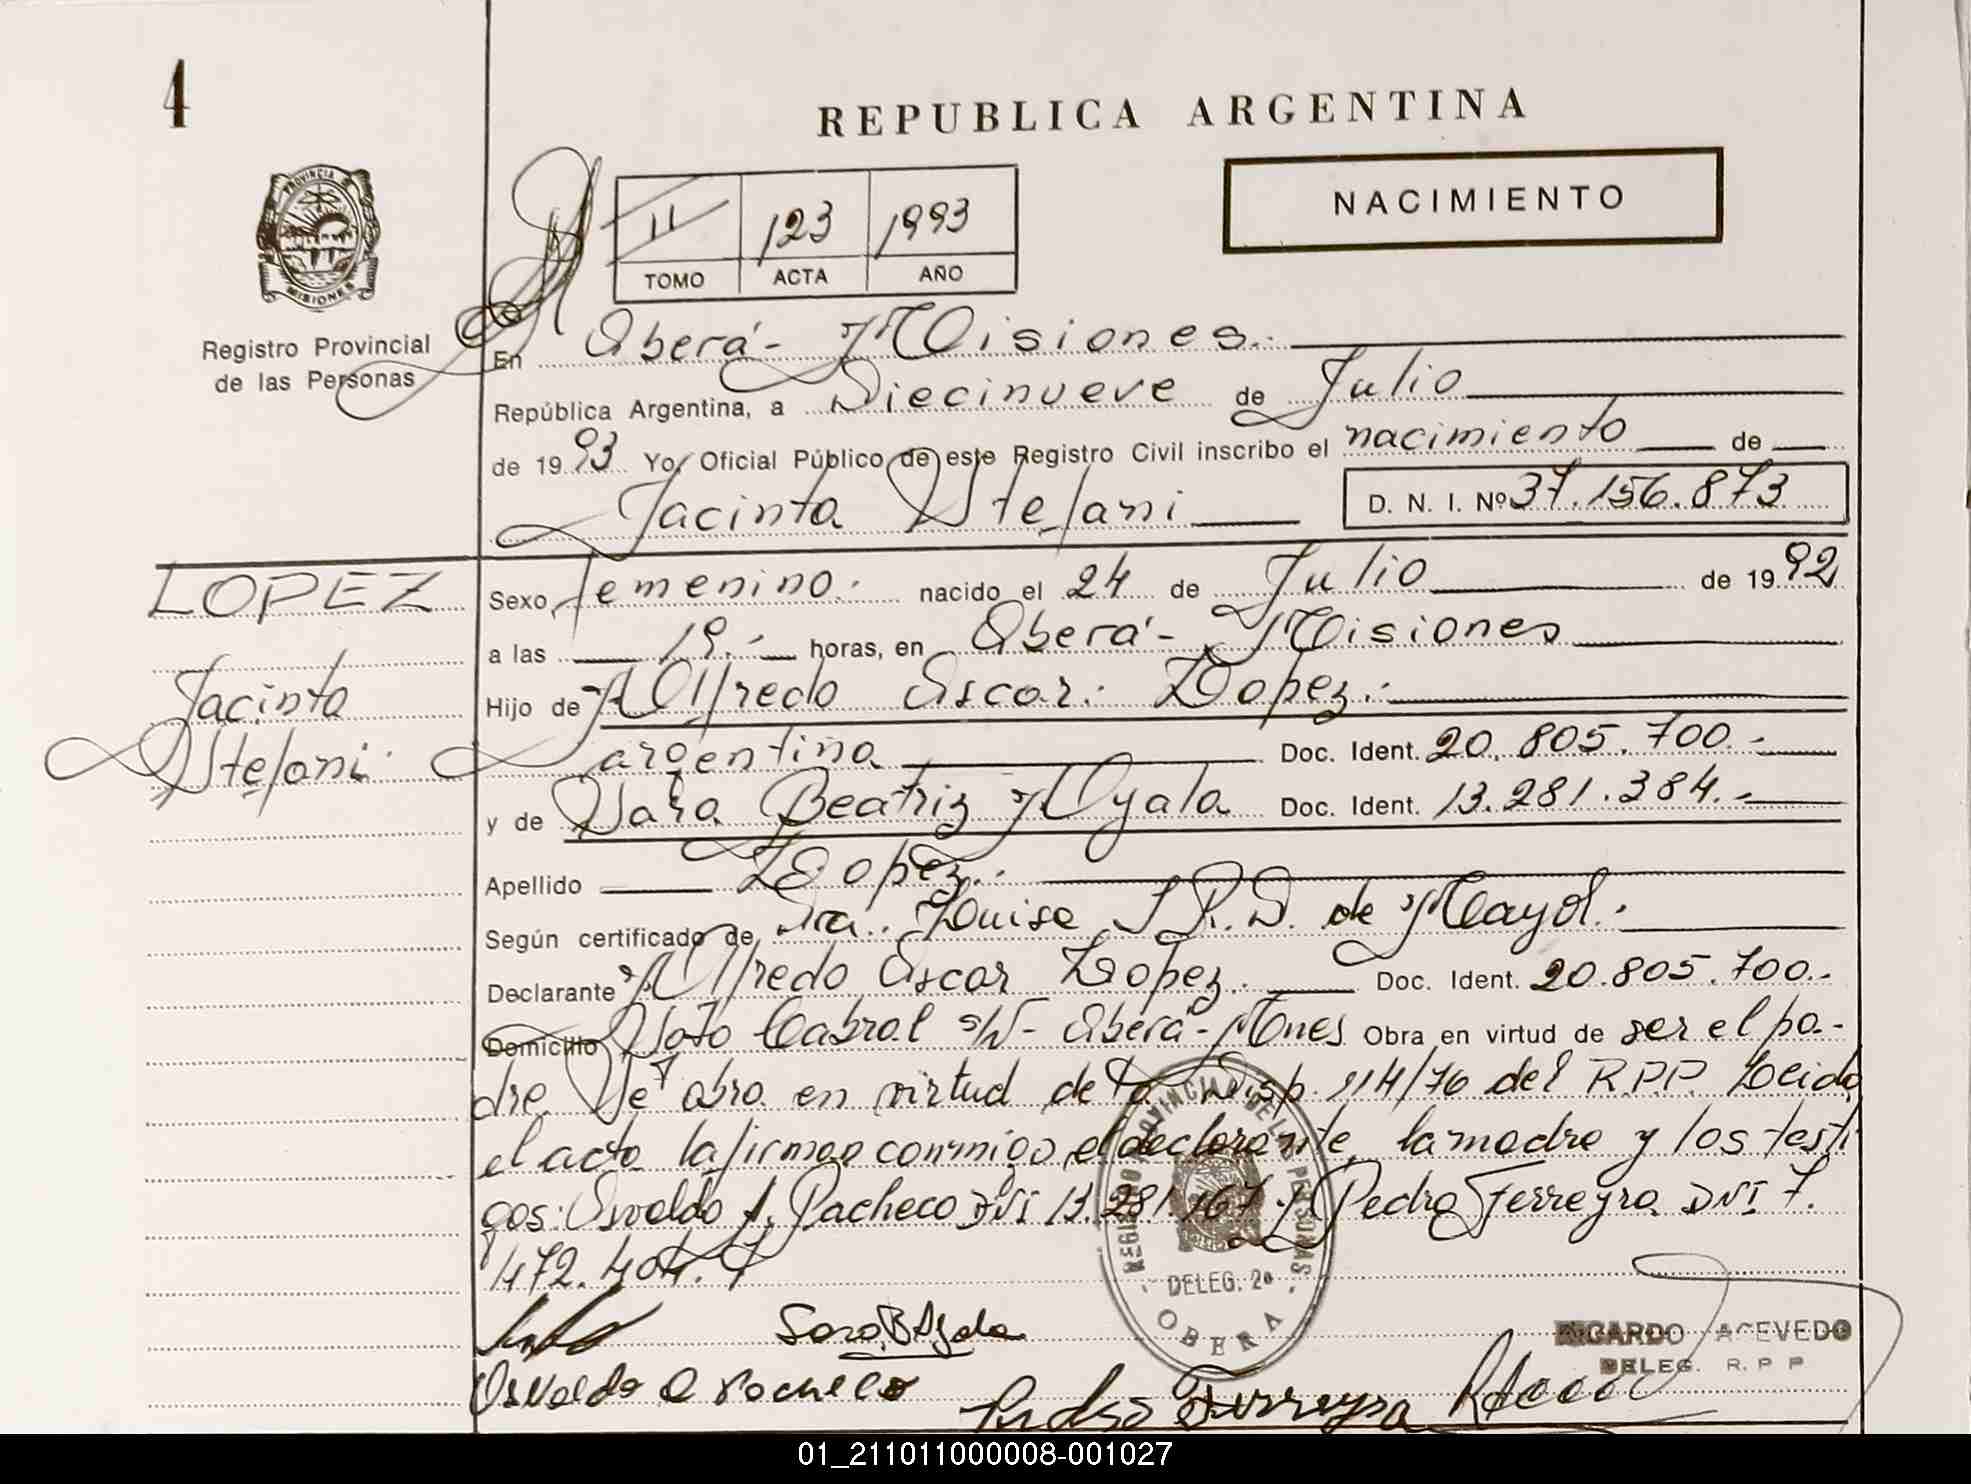 4
REPUBLICA ARGENTINA
PROVINCIA
MISIONES
II 123 1993
TOMO ACTA AÑO
NACIMIENTO
Registro Provincial
de las Personas
En Oberá - Misiones.
República Argentina, a Diecinueve de Julio
de 19 93 Yo, Oficial Público de este Registro Civil inscribo el nacimiento de
Jacinta Stefani D. N. I. Nº 37.156.873
LOPEZ
Jacinta
Stefani
Sexo femenino. nacido el 24 de Julio de 19 92
a las 19.- horas, en Oberá - Misiones
Hijo de Alfredo Oscar Lopez.
argentina Doc. Ident. 20.805.700.-
y de Sara Beatriz Ayala Doc. Ident. 13.281.384.-
Apellido Lopez.
Según certificado de Dra. Luisa R. D. de Mayol.
Declarante Alfredo Oscar Lopez. Doc. Ident. 20.805.700.-
Domicilio Soto Cabral s/N - Oberá - Mnes Obra en virtud de ser el pa-
dre. Se obra en virtud de la Disp. 114/76 del R.P.P. Leida
el acta la firman conmigo el declarante, la madre y los testi
gos: Osvaldo A. Pacheco DNI 13.281.167 y Pedro Ferreyra DNI 7.
472.404.
REGISTRO PROVINCIAL DE LAS PERSONAS
DELEG. 2ª
OBERA
Sara B Ayala
RICARDO ACEVEDO
DELEG. R. P P
Osvaldo A Pacheco Pedro Ferreyra
01_211011000008-001027